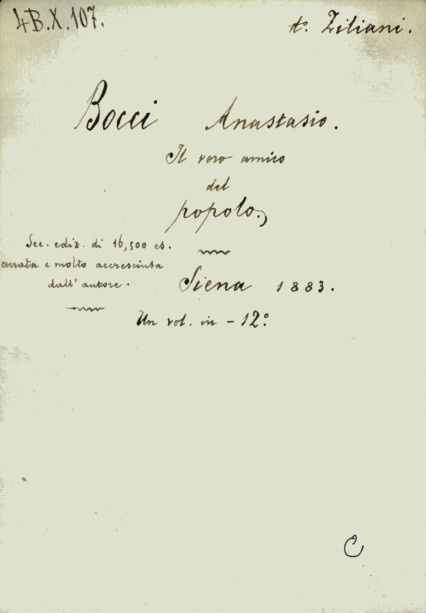 4B.X.107.
do. Ziliani.
Bocci Anastasio.
Il vero amico
del
popolo.
Sec. ediz. di 16,500 es.
currata e molto accresciuta
dall' autore.
Siena 1883.
Un vol. in - 12°
C